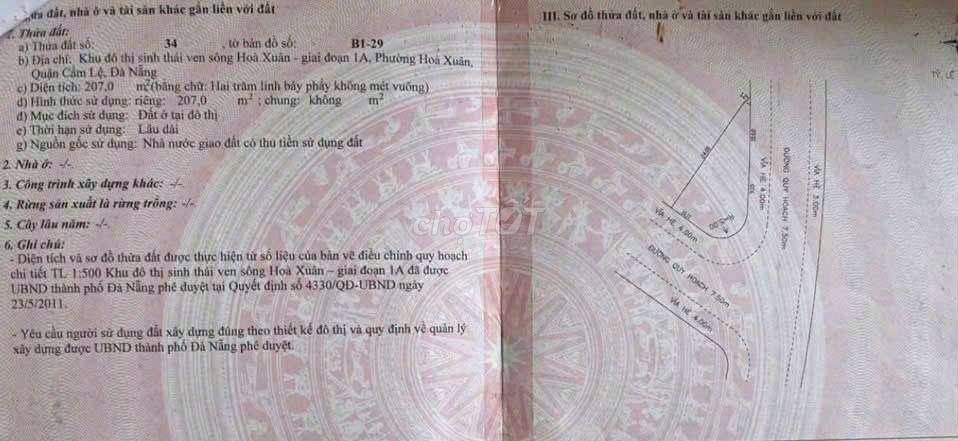 thửa đất, nhà ở và tài sản khác gắn liền với đất
1. Thửa đất:
a) Thửa đất số: 34 , tờ bản đồ số: B1-29
b) Địa chỉ: Khu đô thị sinh thái ven sông Hoà Xuân - giai đoạn 1A, Phường Hoà Xuân,
Quận Cẩm Lệ, Đà Nẵng
c) Diện tích: 207,0 m² (bằng chữ: Hai trăm linh bảy phẩy không mét vuông)
d) Hình thức sử dụng: riêng: 207,0 m² ; chung: không m²
đ) Mục đích sử dụng: Đất ở tại đô thị
e) Thời hạn sử dụng: Lâu dài
g) Nguồn gốc sử dụng: Nhà nước giao đất có thu tiền sử dụng đất
2. Nhà ở: -/-
3. Công trình xây dựng khác: -/-
4. Rừng sản xuất là rừng trồng: -/-
5. Cây lâu năm: -/-
6. Ghi chú:
- Diện tích và sơ đồ thửa đất được thực hiện từ số liệu của bản vẽ điều chỉnh quy hoạch
chi tiết TL 1:500 Khu đô thị sinh thái ven sông Hoà Xuân – giai đoạn 1A đã được
UBND thành phố Đà Nẵng phê duyệt tại Quyết định số 4330/QĐ-UBND ngày
23/5/2011.
- Yêu cầu người sử dụng đất xây dựng đúng theo thiết kế đô thị và quy định về quản lý
xây dựng được UBND thành phố Đà Nẵng phê duyệt.
III. Sơ đồ thửa đất, nhà ở và tài sản khác gắn liền với đất
TỶ LỆ
VỈA HÈ 4.00m
ĐƯỜNG QUY HOẠCH 7.50m
VỈA HÈ 3.00m
VỈA HÈ 4.00m
ĐƯỜNG QUY HOẠCH 7.50m
VỈA HÈ 4.00m
chợTỐT